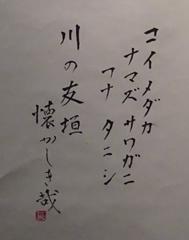 コイ メダカ
ナマズ サワガニ
フナ タニシ
川の友垣
懐かしき哉